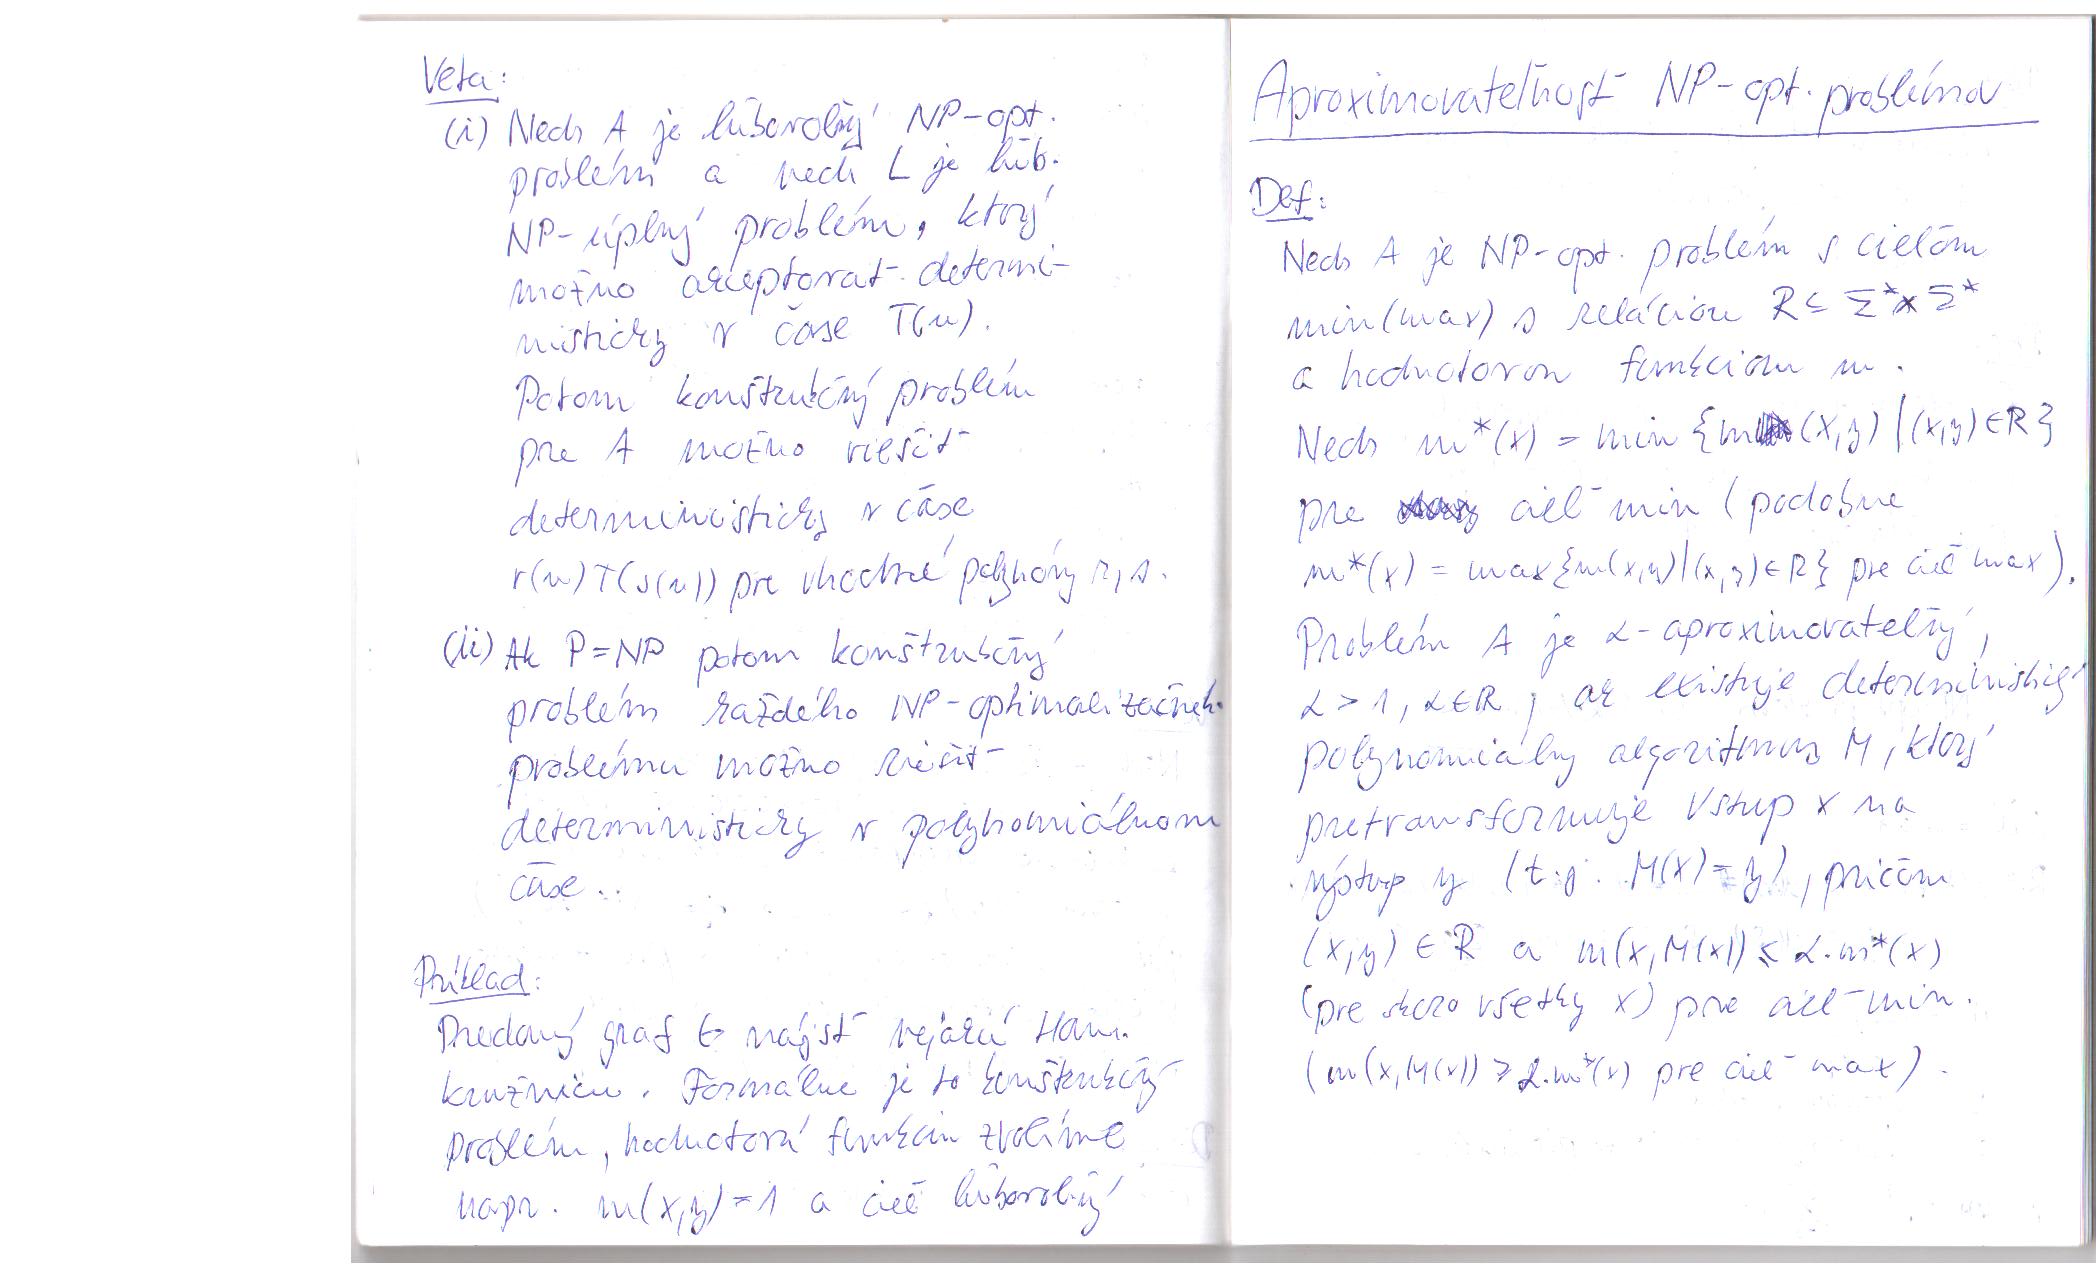 Veta:
(i) Nech A je ľubovoľný NP-opt.
problém a nech L je ľub.
NP-úplný problém, ktorý
možno akceptovať determi-
nisticky v čase T(n).
Potom konštrukčný problém
pre A možno riešiť
deterministicky v čase
r(n)T(s(n)) pre vhodné polynómy r, s.
(ii) Ak P=NP potom konštrukčný
problém každého NP-optimalizačného
problému možno riešiť
deterministicky v polynomiálnom
čase.
Príklad:
Pre daný graf G nájsť nejakú Ham.
kružnicu. Formálne je to konštrukčný
problém, hodnotovú funkciu zvolíme
napr. m(x,y)=1 a cieľ ľubovoľný
Aproximovateľnosť NP-opt. problémov
Def:
Nech A je NP-opt. problém s cieľom
min(max) s reláciou R ⊆ Σ*×Σ*
a hodnotovou funkciou m.
Nech m*(x) = min {m(x,y) | (x,y) ∈ R}
pre cieľ min (podobne
m*(x) = max{m(x,y)|(x,y)∈R} pre cieľ max).
Problém A je α-aproximovateľný,
α > 1, α∈R, ak existuje deterministický
polynomiálny algoritmus M, ktorý
pretransformuje vstup x na
výstup y (t.j. M(x)=y), pričom
(x,y) ∈ R a m(x,M(x)) ≤ α.m*(x)
(pre skoro všetky x) pre cieľ min.
(m(x,M(x)) ≥ α.m*(x) pre cieľ max).